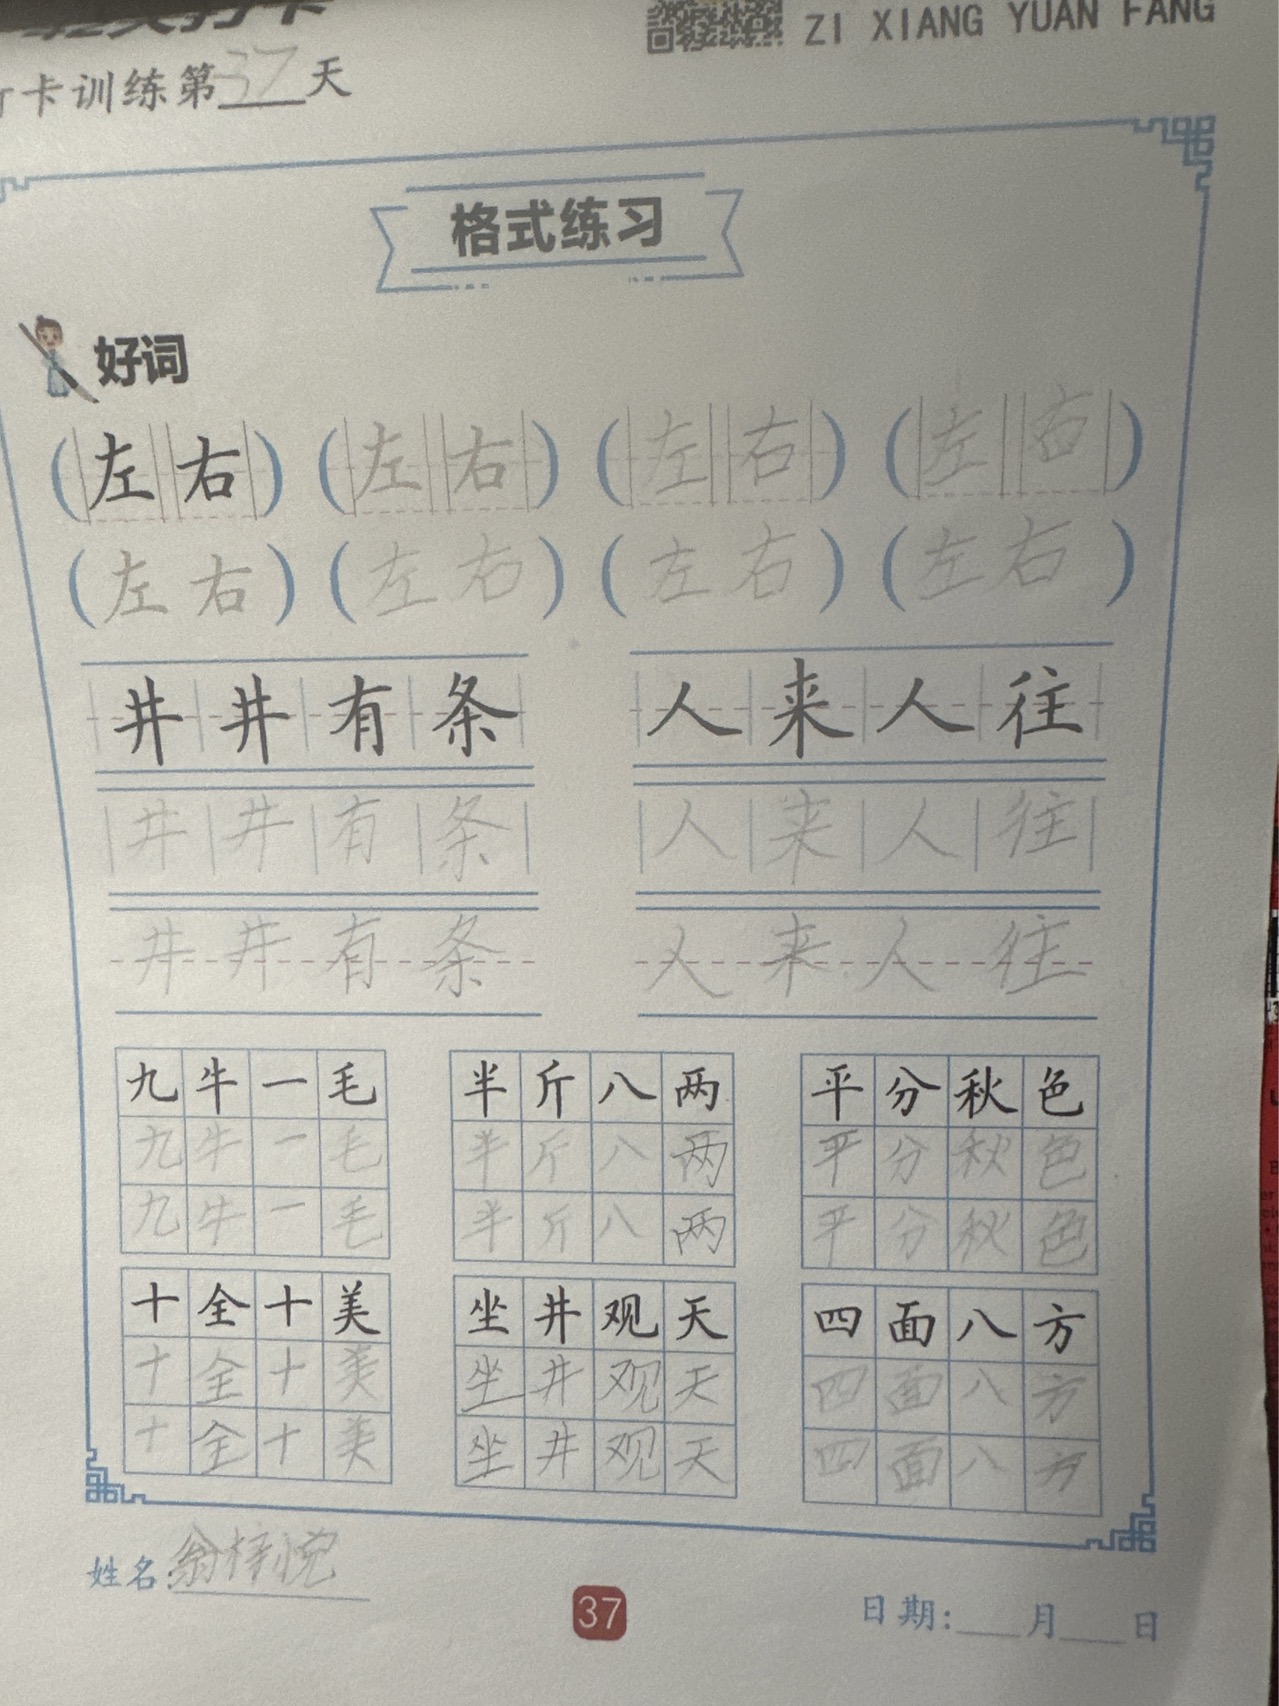 ZI XIANG YUAN FANG
卡训练第37天
格式练习
好词
(左右) (左右) (左右) (左右)
(左右) (左右) (左右) (左右)
井井有条 人来人往
井井有条 人来人往
井井有条 人来人往
九牛一毛 半斤八两 平分秋色
九牛一毛 半斤八两 平分秋色
九牛一毛 半斤八两 平分秋色
十全十美 坐井观天 四面八方
十全十美 坐井观天 四面八方
十全十美 坐井观天 四面八方
姓名:翁梓悦
37
日期:___月___日